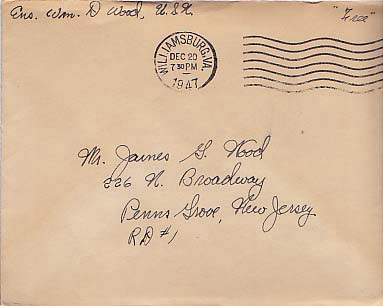 Ens. Wm. D Wood, U.S.N. "Free"
WILLIAMSBURG, VA.
DEC 20
7 30 PM
1947
Mr. James G. Wood
226 N. Broadway
Penns Grove, New Jersey
RD #1